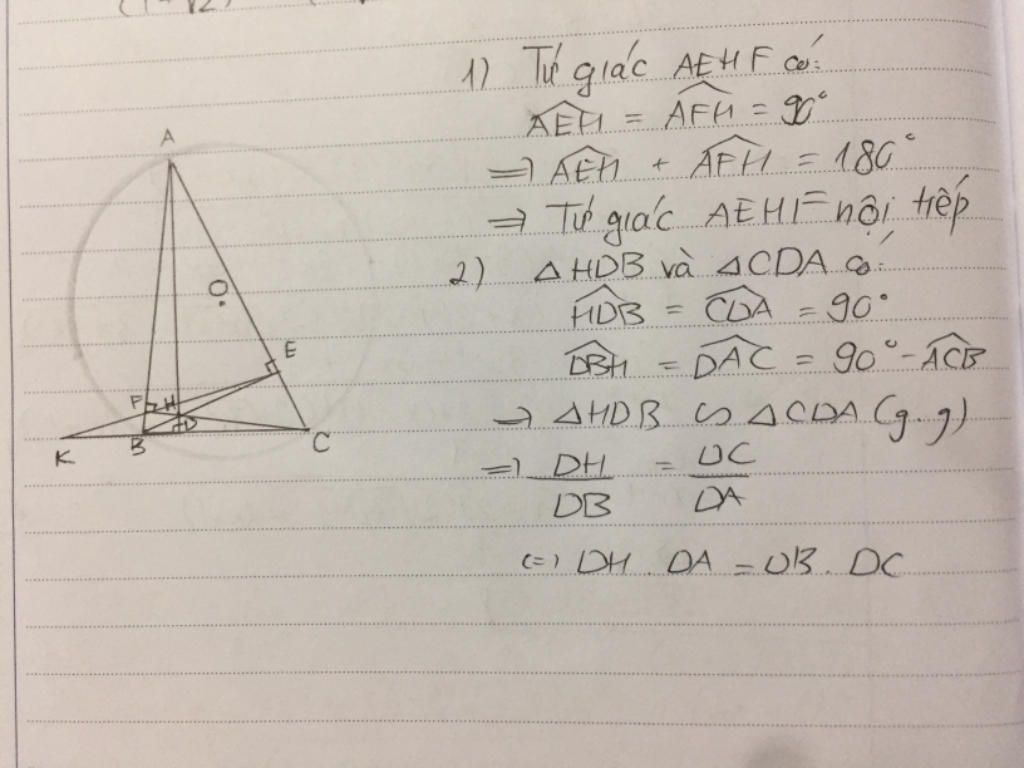 1) Tứ giác AEHF có:
$\widehat{AEH} = \widehat{AFH} = 90°$
=> $\widehat{AEH} + \widehat{AFH} = 180°$
=> Tứ giác AEHF nội tiếp
2) △HDB và △CDA có:
$\widehat{HDB} = \widehat{CDA} = 90°$
$\widehat{DBH} = \widehat{DAC} = 90° - \widehat{ACB}$
=> △HDB ∽ △CDA (g.g)
=> $\frac{DH}{DB} = \frac{DC}{DA}$
<=> DH . DA = DB . DC
A
O
E
F H
D
K B C